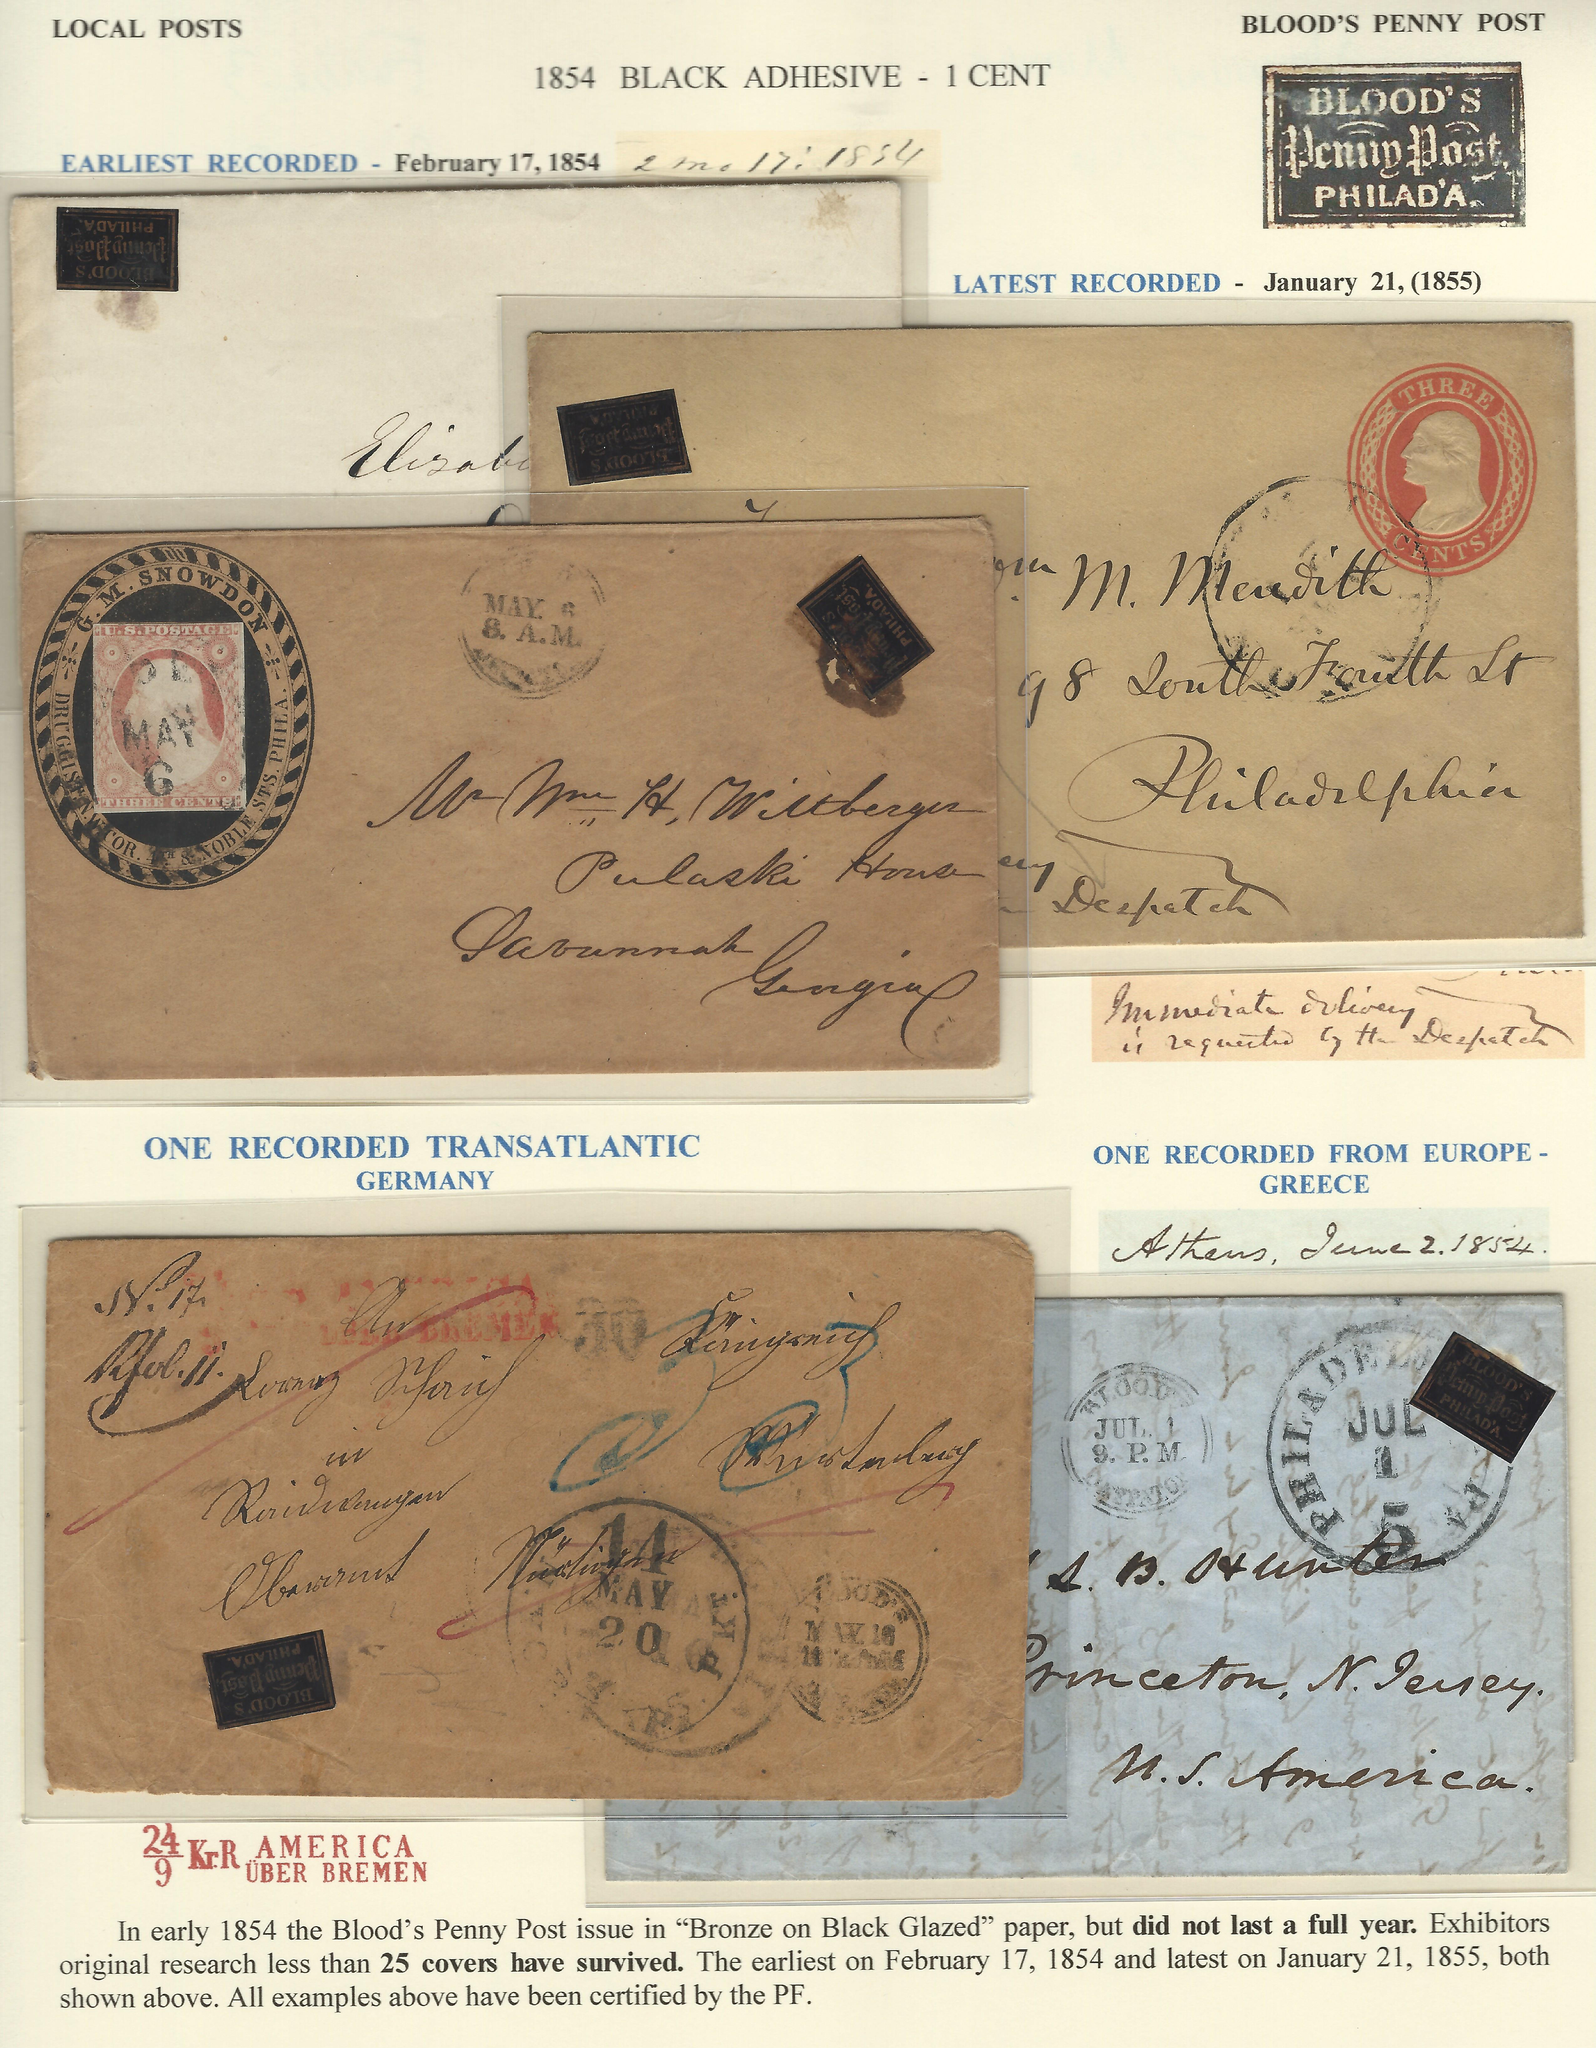 LOCAL POSTS
BLOOD'S PENNY POST
1854 BLACK ADHESIVE - 1 CENT
BLOOD'S
Penny Post,
PHILAD'A.
EARLIEST RECORDED - February 17, 1854
2 mo 17: 1854
BLOOD'S
Penny Post,
PHILAD'A.
LATEST RECORDED - January 21, (1855)
BLOOD'S
Penny Post,
PHILAD'A.
THREE
CENTS
M. Meredith
98 South Fourth St
Philadelphia
Despatch
G. M. SNOWDON
DRUGGIST
COR. & NOBLE STS. PHILA.
U.S. POSTAGE
MAY
6
THREE CENTS
MAY. 6
8. A.M.
PHILAD'A.
Mr Wm H, Wiltberger
Pulaski House
Savannah
Georgia
Immediate delivery
is requested by the Despatch
ONE RECORDED TRANSATLANTIC
GERMANY
ONE RECORDED FROM EUROPE -
GREECE
Athens, June 2. 1854.
No. 17.
An
BREMEN
Königreich
Lorenz Schaich
in
Raidwangen
Oberamt Nürtingen
Würtenberg
11
MAY
20
PKT.
BLOOD'S
MAY. 16
BLOOD'S
Penny Post,
PHILAD'A.
BLOOD'S
JUL. 1
9. P. M.
DESPATCH
PHILADEL
PA.
JUL
1
5
BLOOD'S
Penny Post,
PHILAD'A.
S. B. Hunter
Princeton, N. Jersey.
U. S. America.
24/9 Kr.R AMERICA
ÜBER BREMEN
In early 1854 the Blood's Penny Post issue in “Bronze on Black Glazed” paper, but did not last a full year. Exhibitors
original research less than 25 covers have survived. The earliest on February 17, 1854 and latest on January 21, 1855, both
shown above. All examples above have been certified by the PF.